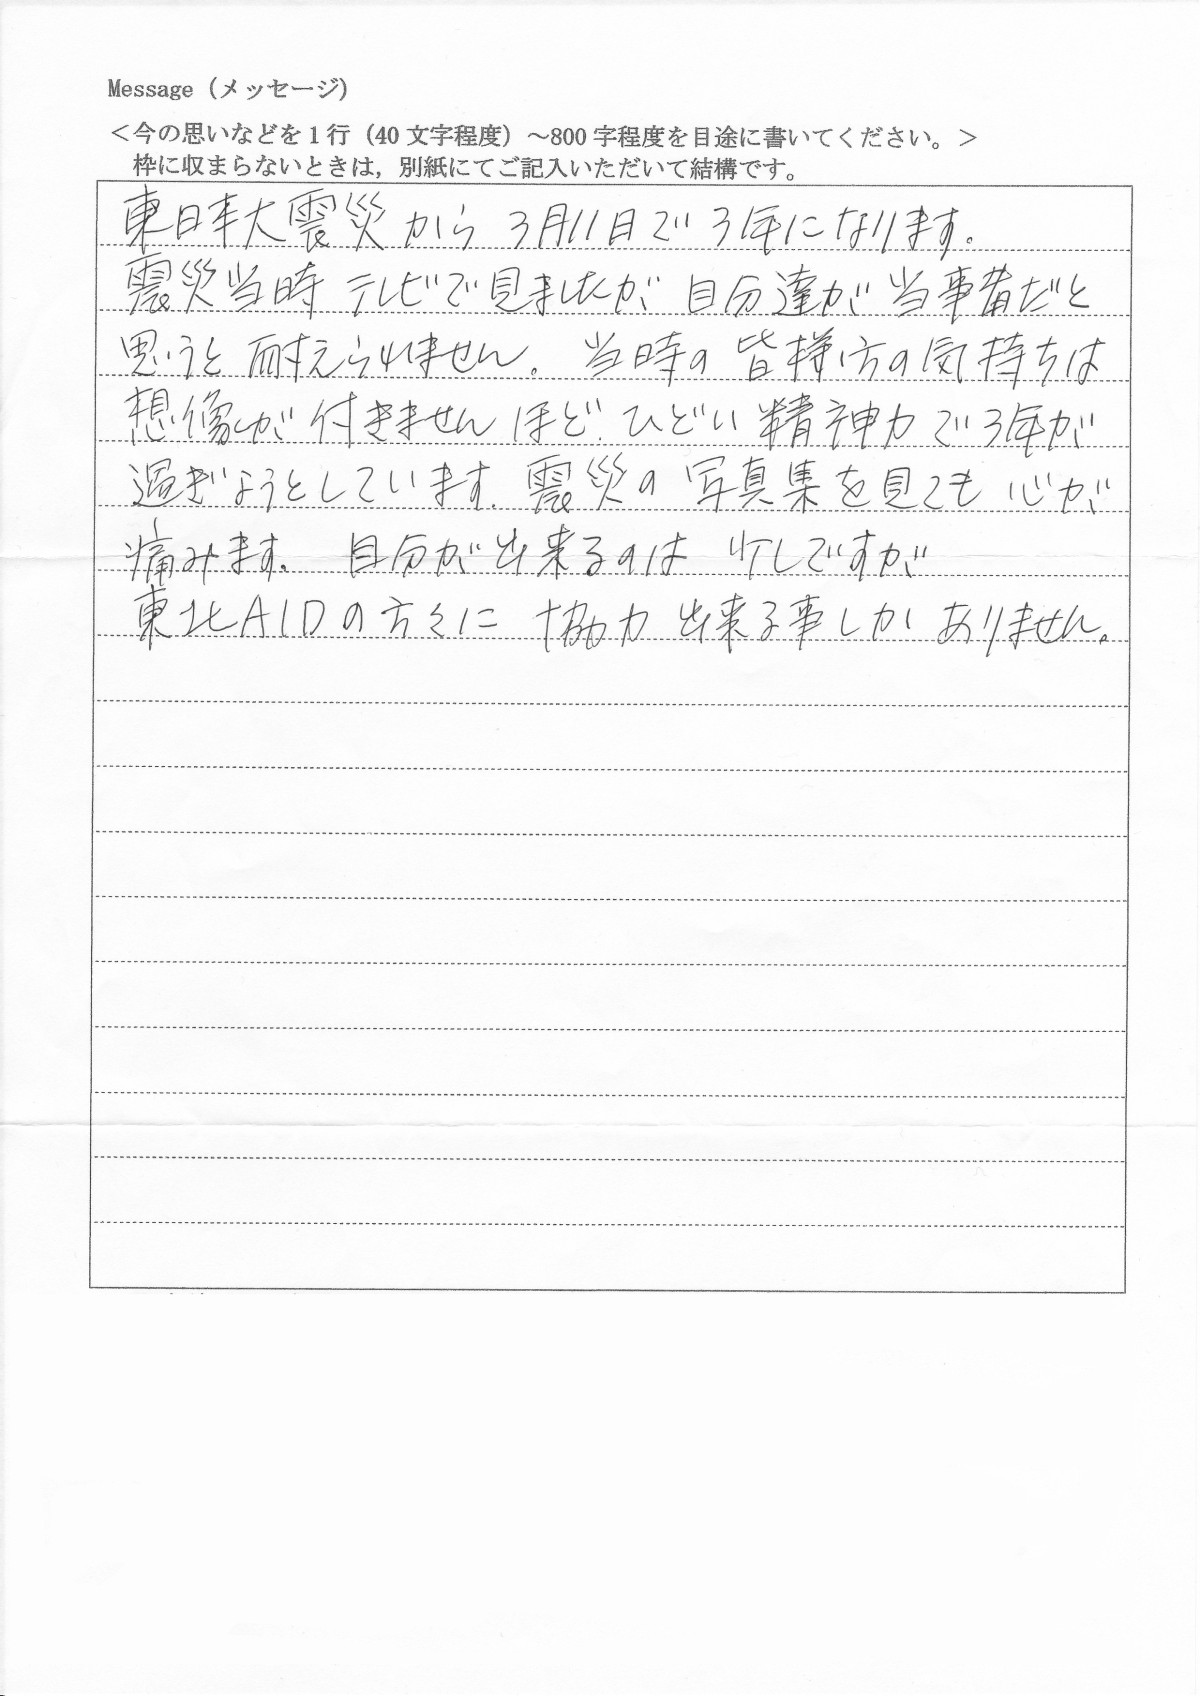 Message（メッセージ）
＜今の思いなどを1行（40文字程度）～800字程度を目途に書いてください。＞
枠に収まらないときは，別紙にてご記入いただいて結構です。
東日本大震災から 3月11日で3年になります。
震災当時 テレビで見ましたが 自分達が 当事者だと
思うと 耐えられません。 当時の 皆様方の気持ちは
想像が 付きませんほど. ひどい 精神力で3年が
過ぎようとしています. 震災の 写真集を見ても 心が
痛みます. 自分が出来るのは 少しですが
東北AIDの方々に 協力 出来る事しか ありません。